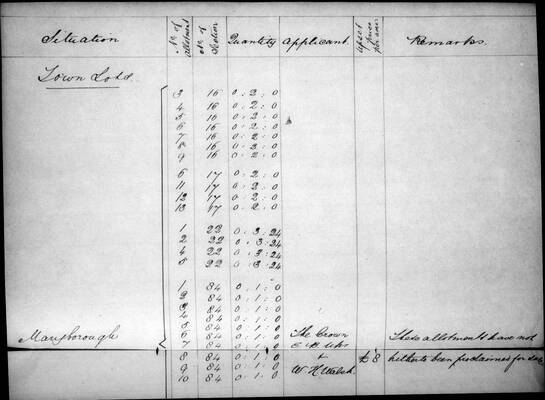 Situation | No. of allotment | No. of Section | Quantity | Applicant | Upset price per acre | Remarks.
Town Lots
3 16 0 : 2 : 0
4 16 0 : 2 : 0
5 16 0 : 2 : 0
6 16 0 : 2 : 0
7 16 0 : 2 : 0
8 16 0 : 2 : 0
9 16 0 : 2 : 0
6 17 0 : 2 : 0
11 17 0 : 2 : 0
12 17 0 : 2 : 0
13 17 0 : 2 : 0
1 22 0 : 3 : 24
2 22 0 : 3 : 24
4 22 0 : 3 : 24
5 22 0 : 3 : 24
1 84 0 : 1 : 0
2 84 0 : 1 : 0
3 84 0 : 1 : 0
4 84 0 : 1 : 0
5 84 0 : 1 : 0
6 84 0 : 1 : 0 The Crown
Maryborough 7 84 0 : 1 : 0 These allotments have not
8 84 0 : 1 : 0 & £8 hitherto been proclaimed for sale
9 84 0 : 1 : 0 W H Walsh
10 84 0 : 1 : 0